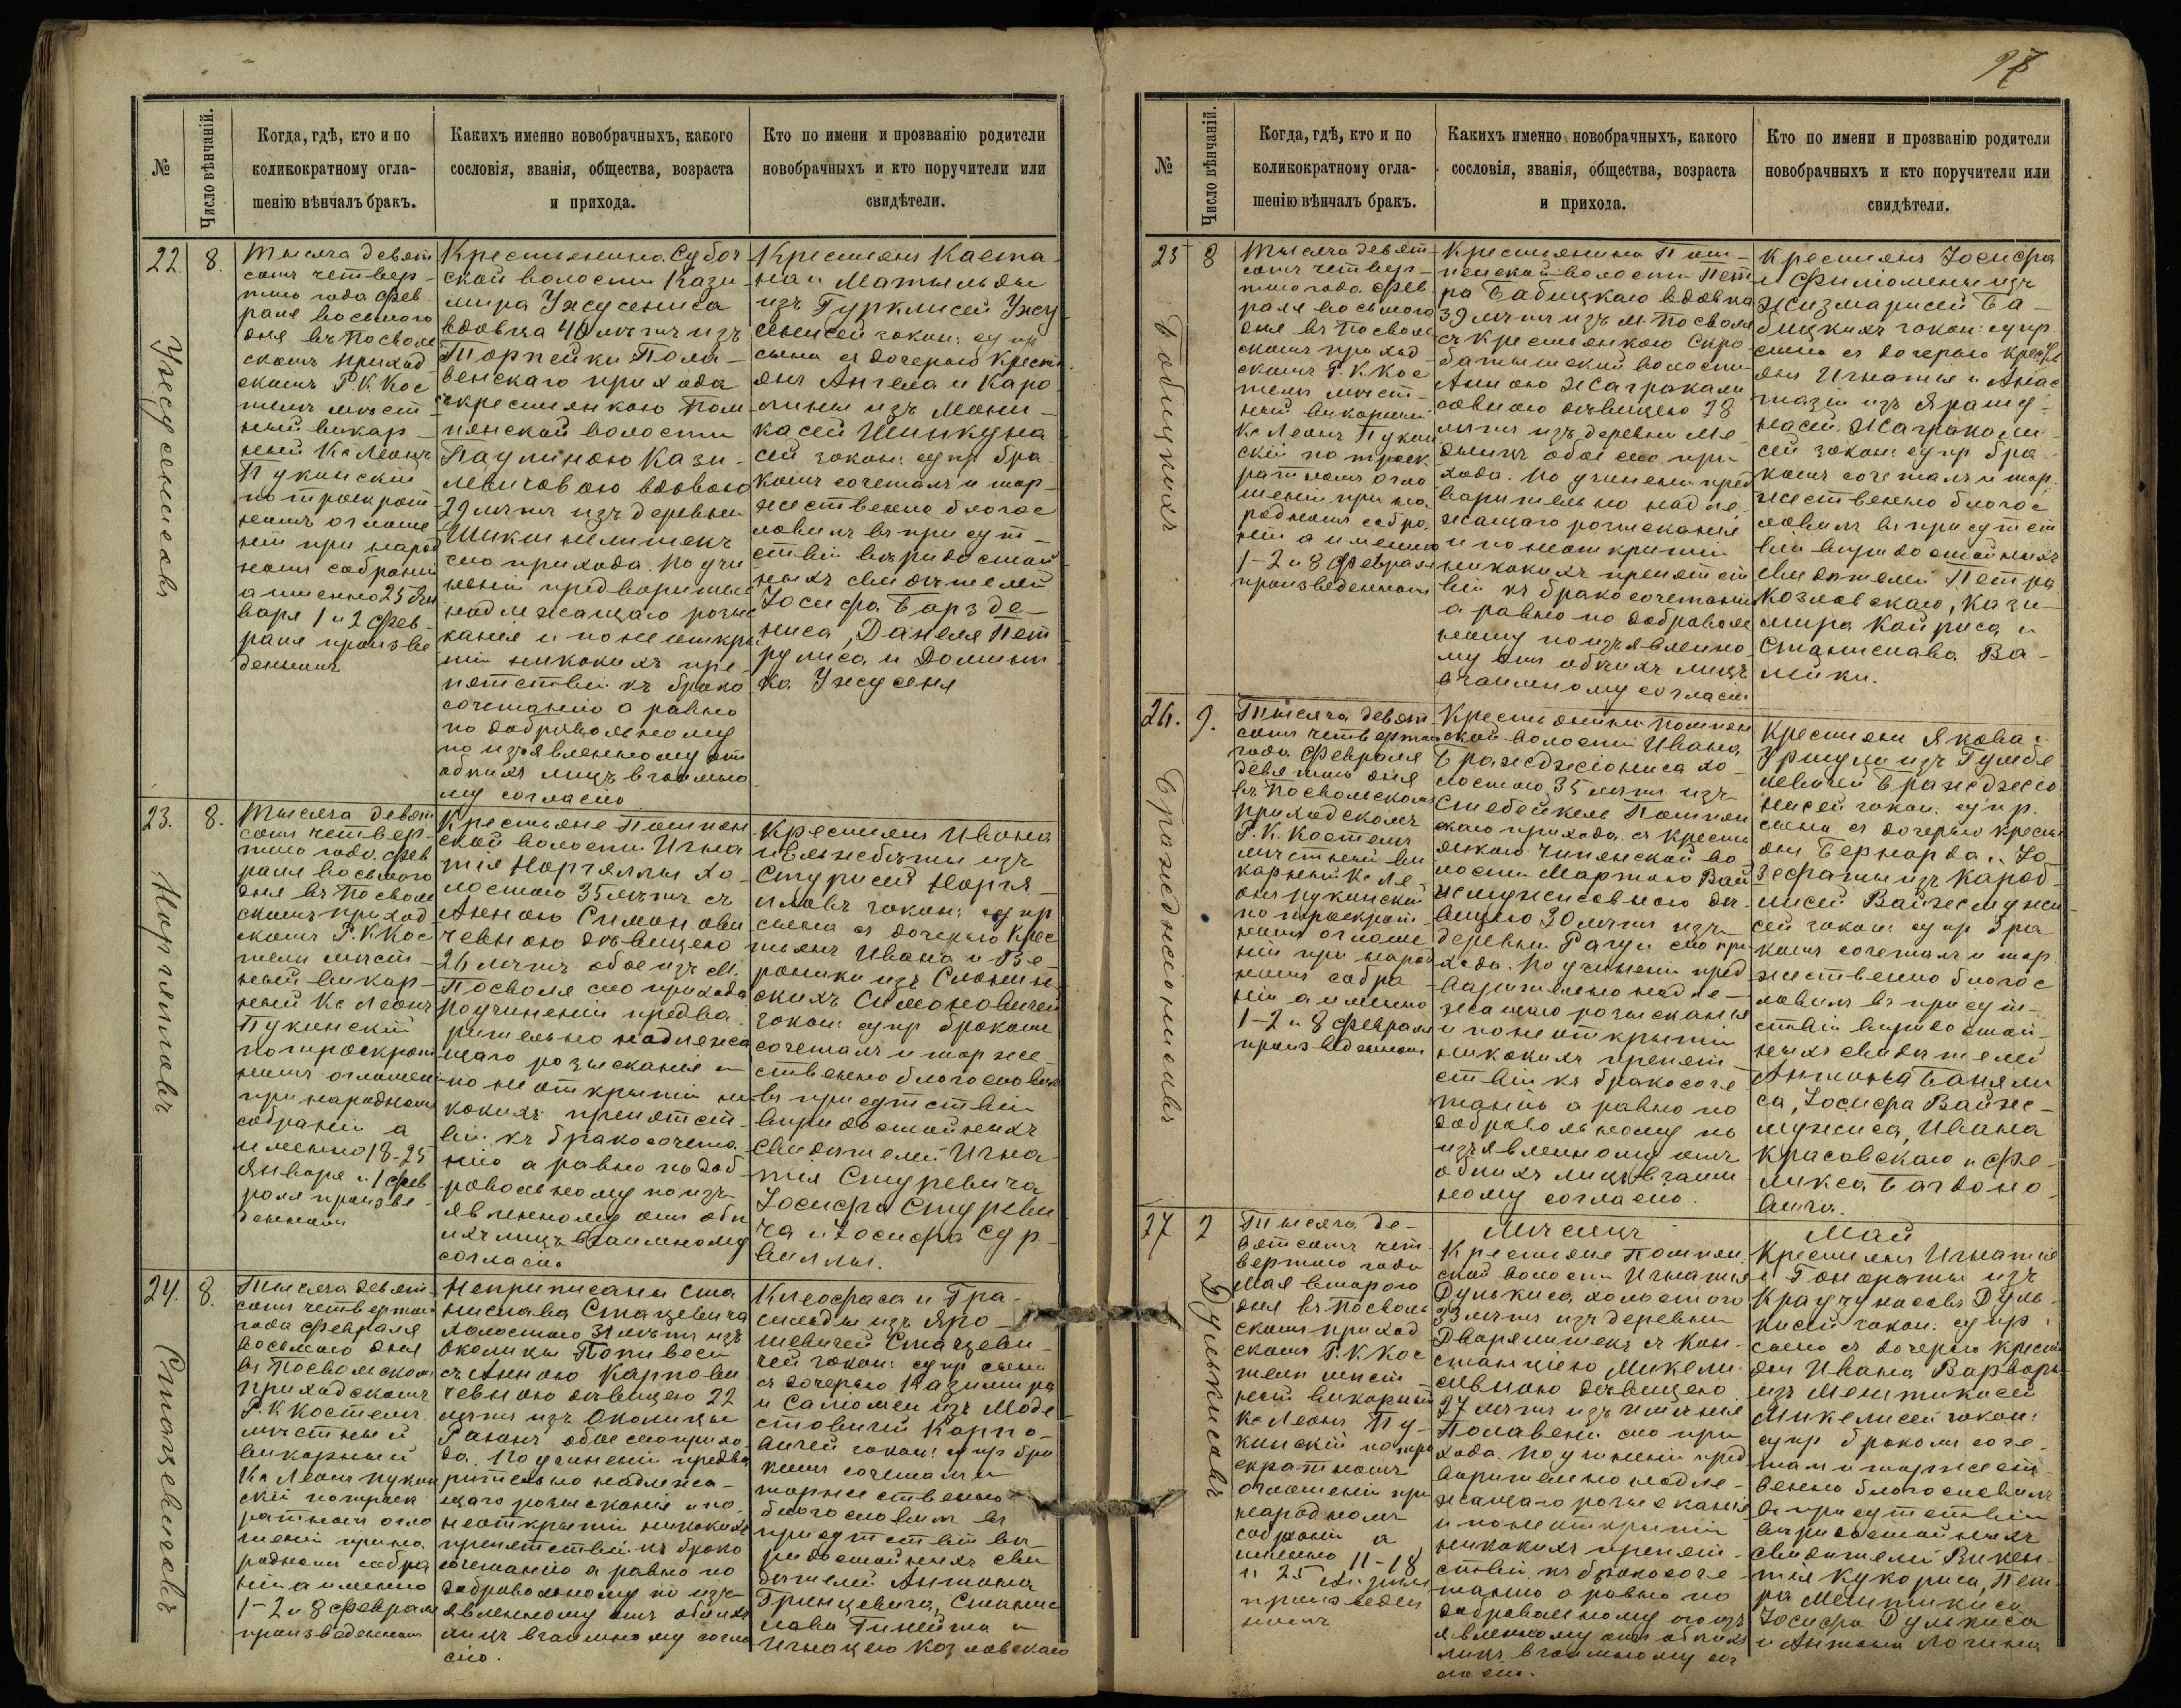 97
№
Число вѣнчаній.
Когда, гдѣ, кто и по
коликократному огла-
шенію вѣнчалъ бракъ.
Какихъ именно новобрачныхъ, какого
сословія, званія, общества, возраста
и прихода.
Кто по имени и прозванію родители
новобрачныхъ и кто поручители или
свидѣтели.
22.
8.
Ужусенисовъ
Тысяча девят
сотъ четвер-
таго года Фев
раля восьмого
дня въ Посволь
скомъ приход
скомъ Р. К Кос
телѣ мѣст-
ный викар-
ный Кс Леонъ
Пукинскій
по троекрат
номъ оглаше
ніи при народ
номъ собраніи
а именно 25 Ян
варя 1 и 2 Фев-
раля произве
денномъ
Крестьянина Субоч
ской волости Кази-
мира Ужусениса
вдовца 40 лѣтъ изъ
Торпейки Пола-
венскаго прихода
съ крестьянкою Пом-
пянской волости
Паулиною Кази-
левичовою вдовою
29 лѣтъ изъ деревни
Шикшнелишекъ
сего прихода. По учи
неніи предварительно
надлежащаго розыс
канія и по неоткры
тіи никакихъ пре-
пятствій къ брако
сочетанію а равно
по добровольному
по изъявленному отъ
обоихъ лицъ взаимно
му согласію
Крестьянъ Каета-
на и Матыльды
изъ Гурклисей Ужу
сенисей закон: супр
сына съ дочерью кресть
янъ Ангела и Каро
лины изъ Мони-
касей Шинкуна
сей закон: супр бра
комъ сочеталъ и тор-
жественно благос
ловилъ въ присут-
ствіи вѣридостой
ныхъ свидѣтелей
Іосифа Барзде-
ниса, Данеля Пет
рулиса и Домини
ка Ужусеня
23.
8.
Норгялловъ
Тысяча девят
сотъ четвер-
таго года Фев
раля восьмого
дня въ Посволь
скомъ приход
скомъ Р. К Кос
телѣ мѣст-
ный викар-
ный Кс Леонъ
Пукинскій
по троекрат
номъ оглашеніи
при народномъ
собраніи а
именно 18-25
Января и 1 Фев
раля произве-
денномъ
Крестьяне Помпян
ской волости Игна
тія Норгяллы хо-
лостаго 35 лѣтъ съ
Анною Симонови
чевною дѣвицею
26 лѣтъ обое изъ м.
Посволя сего прихода
по учиненіи предва-
рительно надлежа
щаго розысканія и
по неоткрытіи ни
какихъ препятст-
вій къ бракосочета
нію а равно по доб-
ровольному по изъ-
явленному отъ обо
ихъ лицъ взаимному
согласію
Крестьянъ Ивана
и Эльжбѣты изъ
Стурисей Норгя-
лловъ закон: супр
сына съ дочерью крес
тьянъ Ивана и Ве
роники изъ
скихъ Симоновичей
закон: супр бракомъ
сочеталъ и торже-
ственно благословилъ
въ присутствіи
вѣридостойныхъ
свидѣтелей Игна
тія Стуревича
Іосифа Стуреви
ча и Іосифа Сур
виллы.
24.
8.
Стацевичовъ
Тысяча девят-
сотъ четвертаго
года Февраля
восьмого дня
въ Посвольскомъ
приходскомъ
Р. К Костелѣ
мѣстный
викарный
Кс Леонъ Пукин
скій по троек
ратномъ огла
шеніи при на
родномъ собра
ніи а именно
1-2 и 8 Февраля
произведенномъ
Неприписани Ста
нислава Стацевича
холостаго 31 лѣтъ изъ
околицы Попивеси
съ Анною Карпови
чевною дѣвицею 22
лѣтъ изъ Околицы
обое сего прихо
да. По учиненіи предва
рительно надлежа-
щаго розысканія и по
неоткрытіи никакихъ
препятствій къ брако
сочетанію а равно по
добровольному по изъ-
явленному отъ обоихъ
лицъ взаимному согла
сію.
Клеофаса и Гра-
сильды изъ Яро-
шевичей Стацеви-
чей закон: супр сына
съ дочерью Казимира
и Саломеи изъ Моде
стовичей Карпо-
вичей закон: супр бра
комъ сочеталъ и
торжественно
благословилъ въ
присутствіи вѣ-
ридостойныхъ сви
дѣтелей Антона
Гринцевича, Станис
лава Гинейта и
Игнація Козловскаго
№
Число вѣнчаній.
Когда, гдѣ, кто и по
коликократному огла-
шенію вѣнчалъ бракъ.
Какихъ именно новобрачныхъ, какого
сословія, званія, общества, возраста
и прихода.
Кто по имени и прозванію родители
новобрачныхъ и кто поручители или
свидѣтели.
25
8
Бабицкихъ
Тысяча девят-
сотъ четвер-
таго года Фев
раля восьмого
дня въ Посволь
скомъ приход-
скомъ Р. К Кос
телѣ мѣст-
ный викарный
Кс Леонъ Пукин
скій по троек
ратномъ огла
шеніи при на
родномъ собра
ніи а именно
1-2 и 8 Февраля
произведенномъ
Крестьянина Пом-
пянской волости Пет
ра Бабицкаго вдовца
39 лѣтъ изъ м. Посволя
съ крестьянкою Скро
батышской волости
Анною Жаграколи
совною дѣвицею 28
лѣтъ изъ деревни Ме
обое сего при-
хода. По учинени пред
варительно надле-
жащаго розысканія
и по неоткрытіи
никакихъ препятст
вій къ бракосочетанію
а равно по добровол
ному по изъявленно-
му отъ обоихъ лицъ
взаимному согласію
Крестьянъ Іосифа
и Филомены изъ
Жизмарисей Ба-
бицкихъ закон: супр
сына съ дочерью кресть
янъ Игнатія и Анас
тазіи изъ Ярашу-
насей Жаграколи-
сей закон: супр бра-
комъ сочеталъ и тор
жественно благос
ловилъ въ присутст
віи вѣридостойныхъ
свидѣтелей Петра
Козловскаго, Кази-
мира Кайриса и
Станислава Ва-
лики.
26.
9.
Бражджіонисовъ
Тысяча девят-
сотъ четвертаго
года Февраля
девятаго дня
въ Посвольскомъ
приходскомъ
Р. К. Костелѣ
мѣстный ви
карный Кс Ле
онъ Пукинскій
по троекрат-
номъ оглаше
ніи при народ
номъ собра
ніи а именно
1-2 и 8 Февраля
произведенномъ
Крестьянина Помпян
ской волости Ивана
Бражджіониса хо
лостаго 35 лѣтъ изъ
Стебейкель Помпян
скаго прихода съ кресть
янкою Чипянской во
лости Мартою Вай
жмужисовною дѣ-
вицею 30 лѣтъ изъ
деревни Рагуи сего при
хода. По учиненіи пред
варительно надле-
жащаго розысканія
и по неоткрытіи
никакихъ препят
ствій къ бракосоче
танію а равно по
добровольному по
изъявленному отъ
обоихъ лицъ взаим
ному согласію.
Крестьянъ Якова и
Уршули изъ Гумбе
левичей Бражджіо
нисей закон. супр.
сына съ дочерью кресть
янъ Бернарда и Іо-
зефаты изъ Кароб-
лисей Вайжмужи
сей закон: супр бра
комъ сочеталъ и тор
жественно благос
ловилъ въ присут-
ствіи вѣридостой-
ныхъ свидѣтелей
Антона Баняли
са, Іосифа Вайж-
мужиса, Ивана
Красовскаго и Фе-
ликса Багдоно-
вича.
Мѣсяцъ
Май
27
2
Дулькисовъ
Тысяча де-
вятсотъ чет-
вертаго года
Мая второго
дня въ Посволь
скомъ приход
скомъ Р. К Кос
телѣ мѣст-
ный викарный
Кс Леонъ Пу-
кинскій по тро
екратномъ
оглашеніи при
народномъ
собраніи а
именно 11-18
и 25 Апрѣля
произведен
номъ
Крестьяне Помпян
ской волости Игнатія
Дулькиса холостого
33 лѣтъ изъ деревни
Дворялишекъ съ Кон-
станціею Микели
совною дѣвицею
27 лѣтъ изъ имѣнія
Полавени сего при
хода. По учинени пред
варительно надле-
жащаго розысканія
и по неоткрытіи
никакихъ препят-
ствій къ бракосоче-
танію а равно по
добровольному по изъ
явленному отъ обоихъ
лицъ взаимному со-
гласію.
Крестьянъ Игнатія
и Гонораты изъ
Краучунасовъ Дуль-
кисей закон. супр.
сына съ дочерью кресть
янъ Ивана Варвары
изъ Мештикасей
Микелисей закон:
супр бракомъ соче-
талъ и торжест
венно благословилъ
въ присутствіи
вѣридостойныхъ
свидѣтелей Викен-
тія Кукориса, Пет-
ра Мештикиса
Іосифа Дулькиса
и Антона